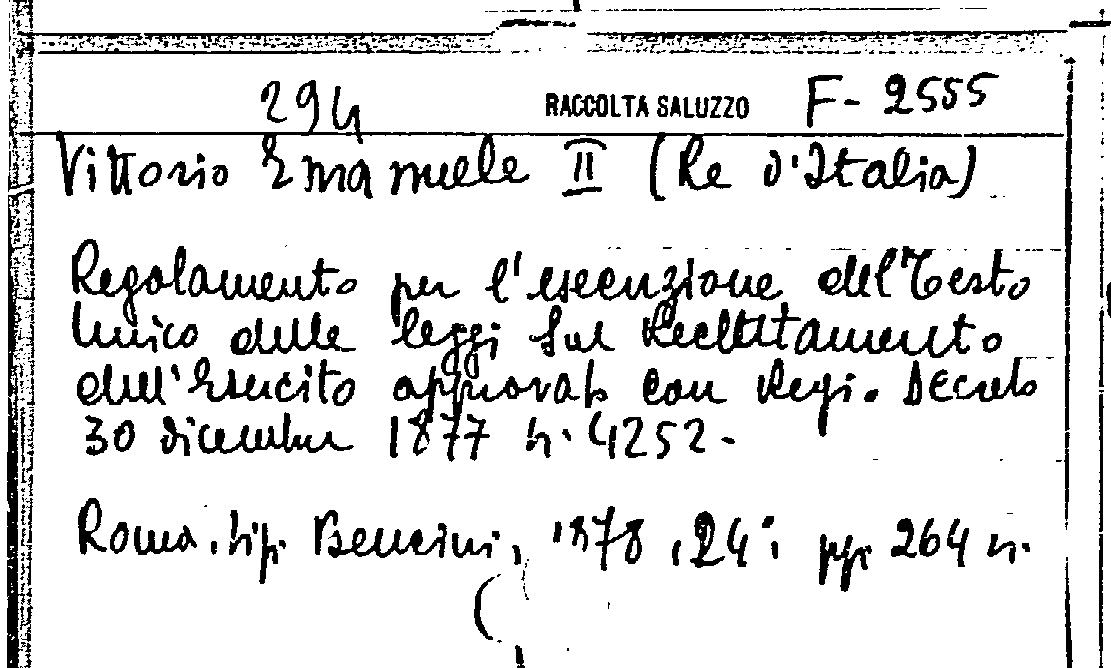 294 RACCOLTA SALUZZO F- 2555
Vittorio Emanuele II (Re d'Italia)
Regolamento per l'esecuzione del Testo
Unico delle leggi sul Reclutamento
dell'Esercito approvato con Regi. Decreto
30 dicembre 1877 n. 4252-
Roma, tip. Bencini, 1878, 24°. pp. 264 n.